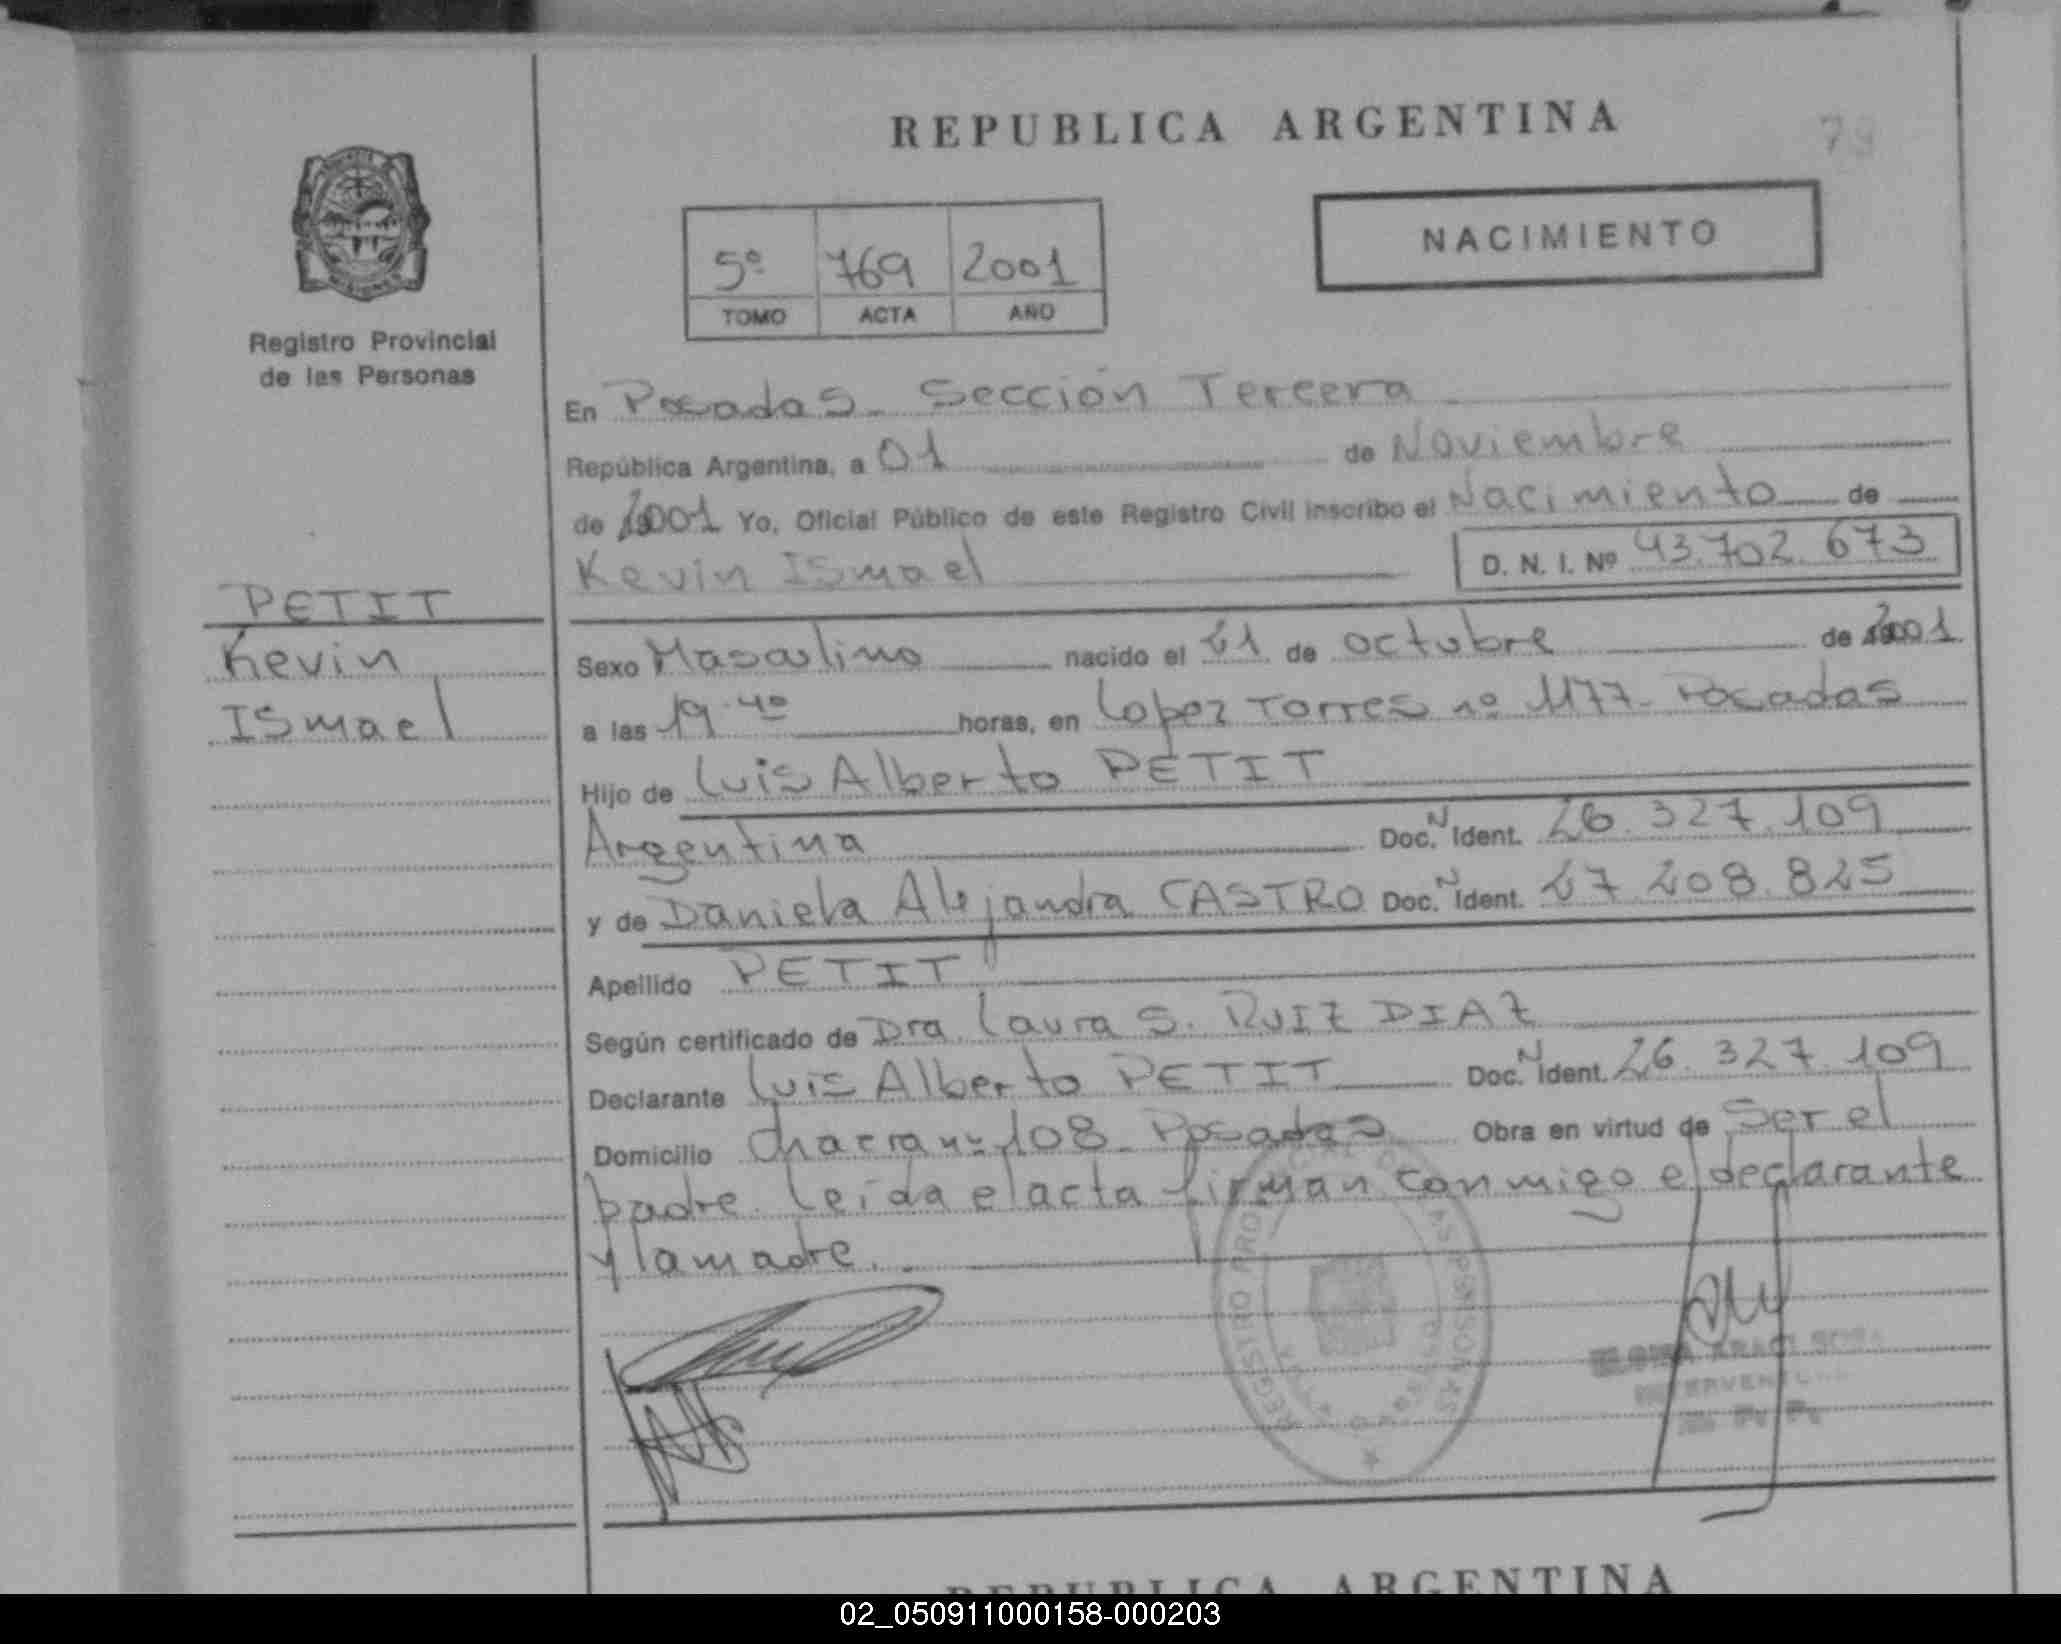 REPUBLICA ARGENTINA
79
5º 769 2001
TOMO ACTA AÑO
NACIMIENTO
Registro Provincial
de las Personas
En Posadas - Sección Tercera
República Argentina, a 01 de Noviembre
de 2001 Yo, Oficial Público de este Registro Civil inscribo el Nacimiento de
Kevin Ismael D. N. I. Nº 43.702.673
PETIT
Kevin
Ismael
Sexo Masculino nacido el 21 de octubre de 2001
a las 19.40 horas, en Lopez Torres nº 1177 - Posadas
Hijo de Luis Alberto PETIT
Argentina Doc. N Ident. 26.327.109
y de Daniela Alejandra CASTRO Doc. N Ident. 27.208.825
Apellido PETIT
Según certificado de Dra. Laura S. RUIZ DIAZ
Declarante Luis Alberto PETIT Doc. N Ident. 26.327.109
Domicilio Chacra nº 108 - Posadas Obra en virtud de Ser el
padre. Leída el acta firman conmigo el declarante
y la madre.
REGISTRO PROVINCIAL DE LAS PERSONAS
REPUBLICA ARGENTINA
02_050911000158-000203